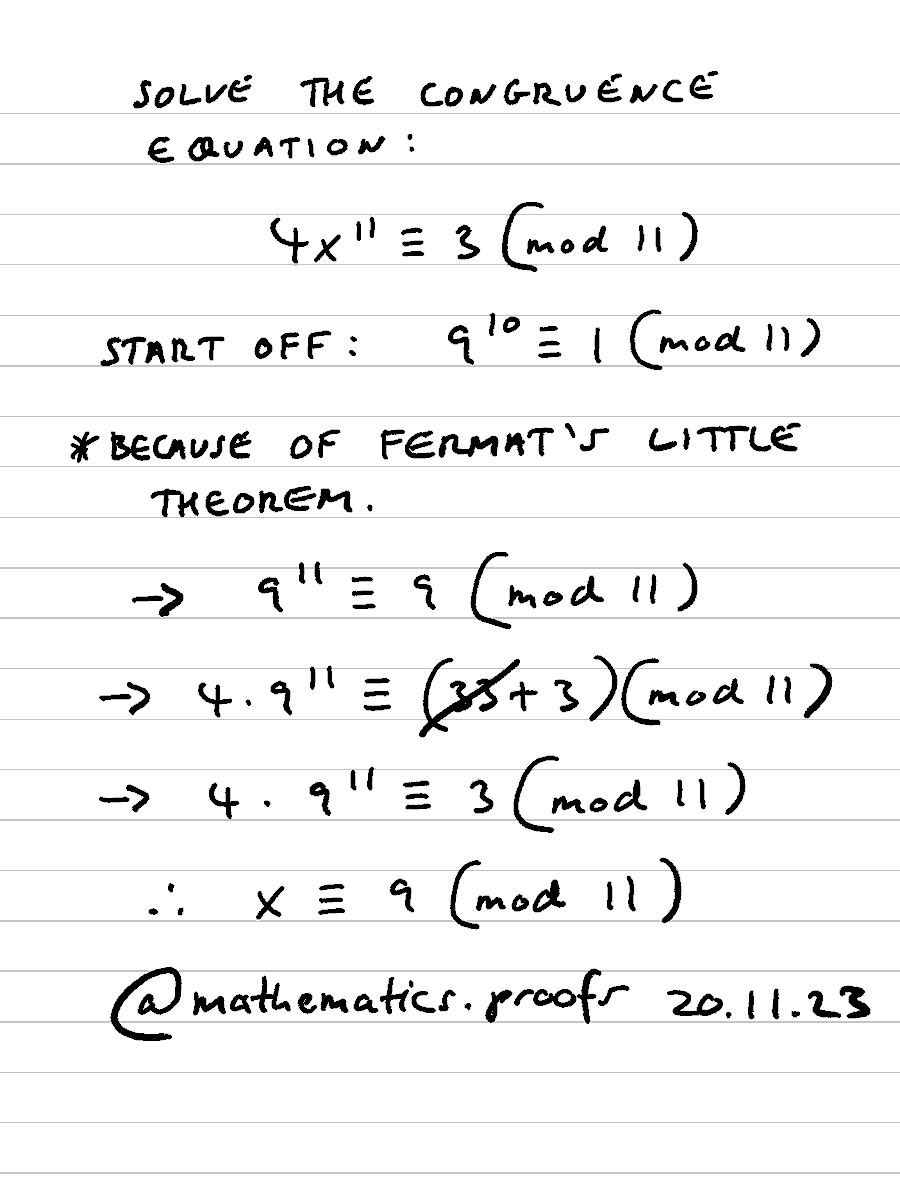 SOLVE THE CONGRUENCE
EQUATION:
4x¹¹ ≡ 3 (mod 11)
START OFF: 9¹⁰ ≡ 1 (mod 11)
* BECAUSE OF FERMAT'S LITTLE
THEOREM.
→ 9¹¹ ≡ 9 (mod 11)
→ 4.9¹¹ ≡ (33+3)(mod 11)
→ 4.9¹¹ ≡ 3 (mod 11)
∴ x ≡ 9 (mod 11)
@mathematics.proofs 20.11.23